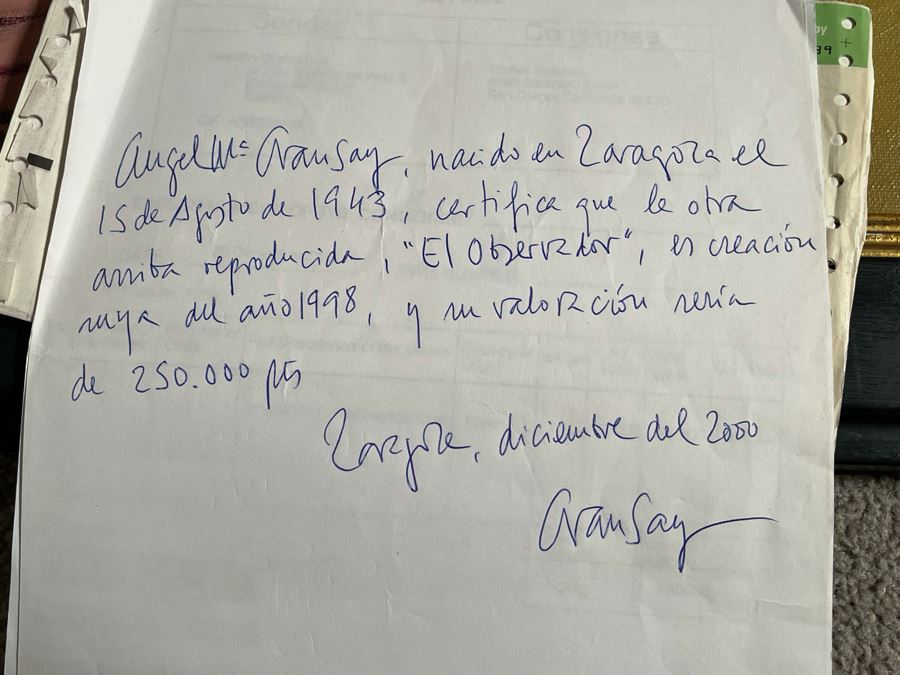 Sender
Consignee
Angel Mª Aransay, nacido en Zaragoza el
15 de Agosto de 1943, certifica que la obra
arriba reproducida, "El Observador", es creación
suya del año 1998, y su valoración sería
de 250.000 pts
Zaragoza, diciembre del 2000
Aransay